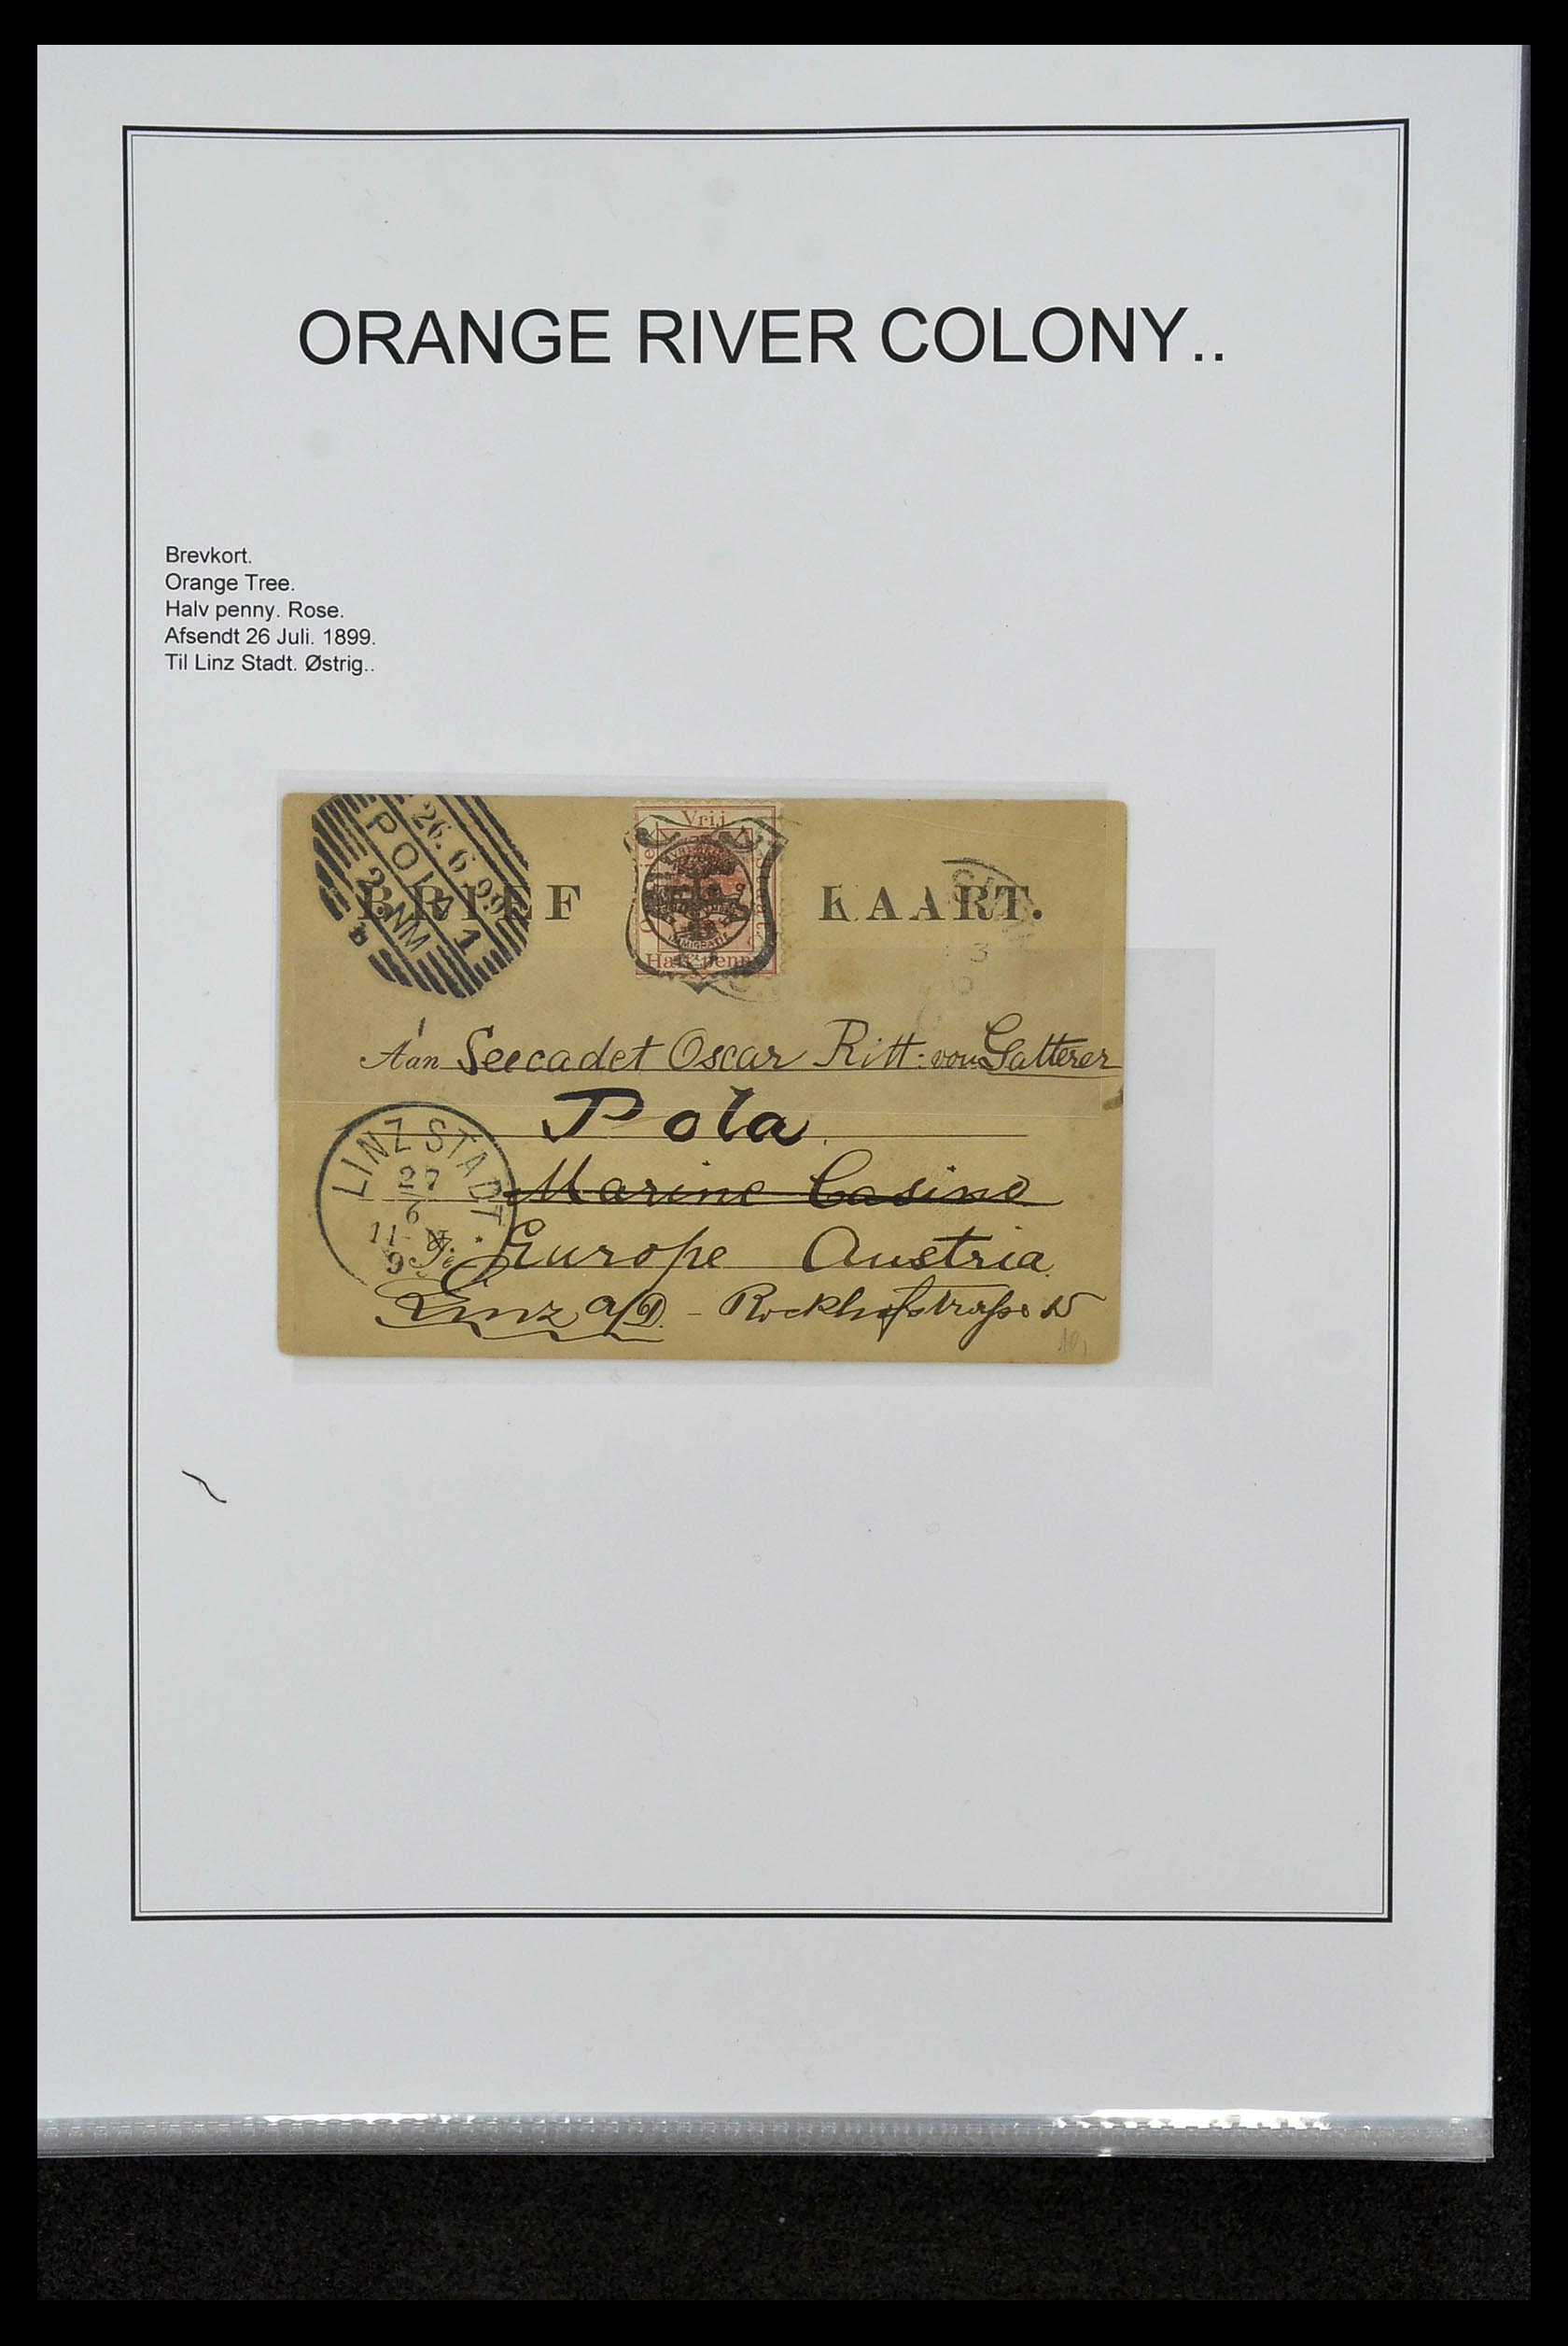 ORANGE RIVER COLONY..
Brevkort.
Orange Tree.
Halv penny. Rose.
Afsendt 26 Juli. 1899.
Til Linz Stadt. Østrig..
26. 6 99
POLA 1
2. NM
BRIEF KAART.
Vrij
Half penny
IMMIGRATIE
Aan Seecadet Oscar Ritt. von Gatterer
Pola
Marine Casino
Te Europe Austria
Linz a/D. - Rockhofstraße 15
LINZ STADT
27
6
11-V.
9